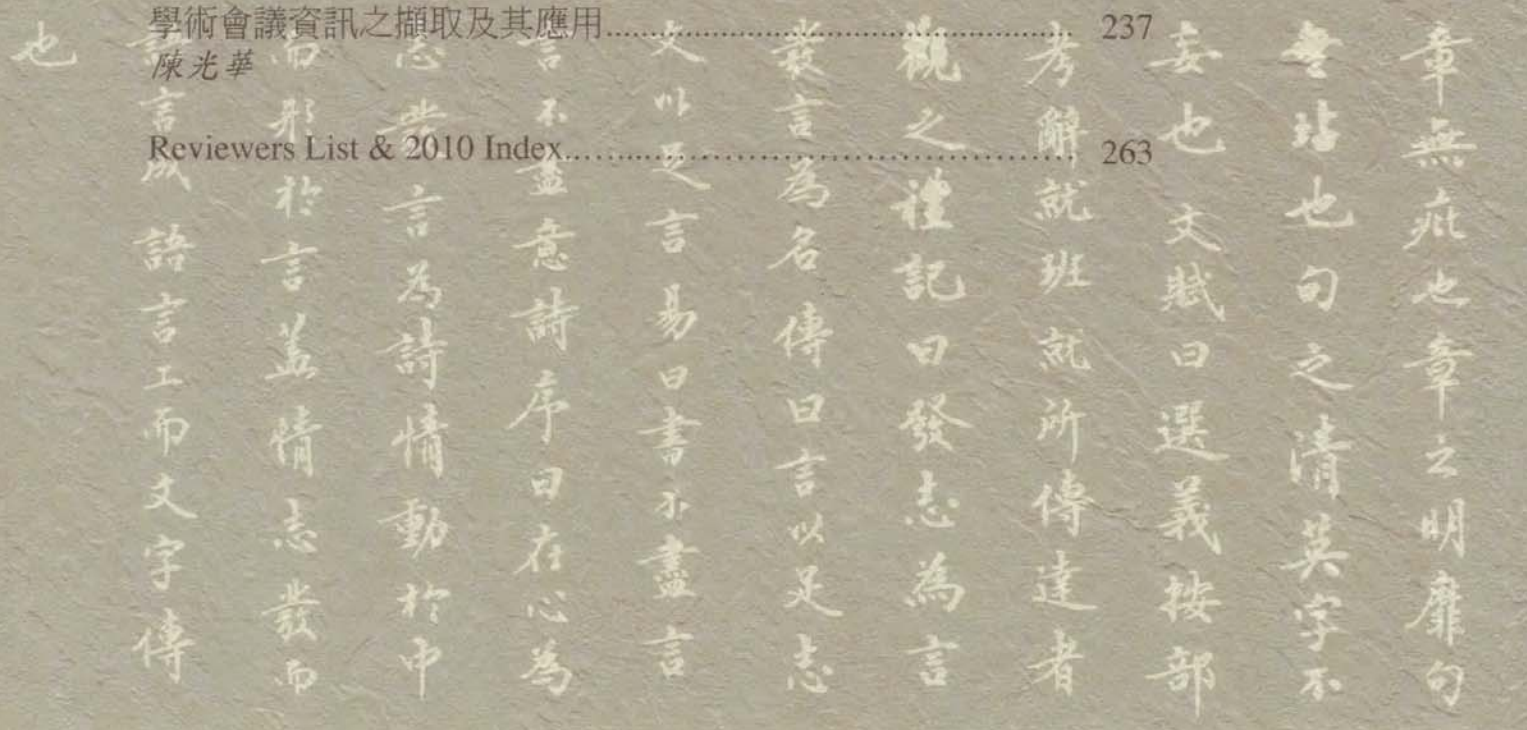 學術會議資訊之擷取及其應用................................................ 237
陳光華
Reviewers List & 2010 Index.......................................... 263
章無疵也章之明靡句
無玷也句之清英字不
妄也文賦曰選義按部
考辭就班就所傳達者
觀之禮記曰發志為言
發言為名傳曰言以足志
文以足言易曰書不盡言
言不盡意詩序曰在心為
志發言為詩情動於中
而形於言蓋情志發而
言成語言工而文字傳
也